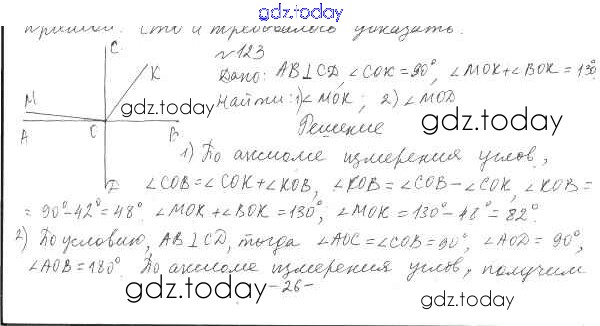 gdz.today
прямой. Что и требовалось доказать.
№123
Дано: AB⊥CD, ∠COK=90°, ∠MOK+∠BOK=130°
Найти: 1) ∠MOK; 2) ∠MOD
Решение
1) По аксиоме измерения углов,
∠COB=∠COK+∠KOB, ∠KOB=∠COB-∠COK, ∠KOB=
=90°-42°=48°. ∠MOK+∠BOK=130°; ∠MOK=130°-48°=82°.
2) По условию, AB⊥CD, тогда ∠AOC=∠COB=90°, ∠AOD=90°,
∠AOB=180°. По аксиоме измерения углов, получим
-26-
C
K
M
A
C
B
D
gdz.today
gdz.today
gdz.today
gdz.today